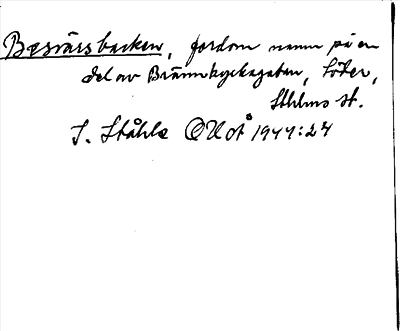 Besvärsbacken, fordom namn på en
del av Brännkyrkagatan, Söder,
Sthlms st.
I. Ståhle OUoÅ 1944:24